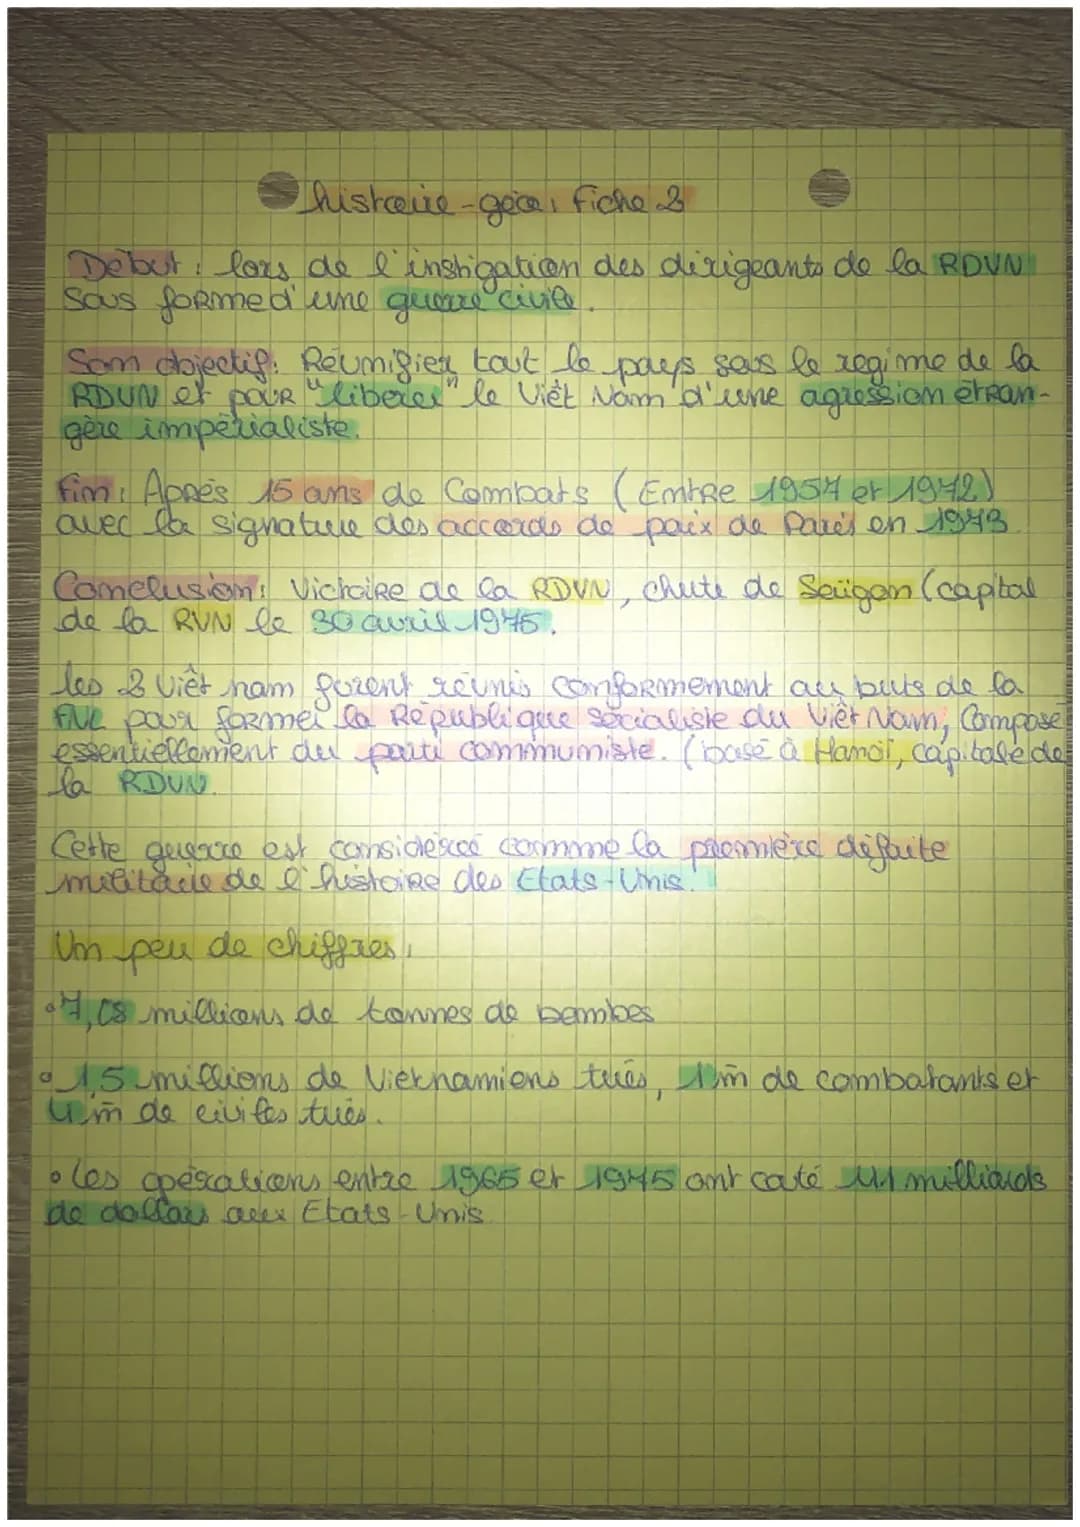 histoire-géo: Fiche 2
Début: lors de l'instigation des dirigeants de la RDVN
sous forme d'une guerre civile.
Son objectif: Réunifier tout le pays sous le regime de la
RDVN et pour "libérer" le Viêt Nam d'une agression étran-
gère impérialiste.
Fin: Après 15 ans de Combats (Entre 1957 et 1972)
avec la signature des accords de paix de Paris en 1973
Conclusion: Victoire de la RDVN, chute de Saïgon (capital
de la RVN le 30 avril 1975.
les 2 Viêt nam furent réunis conformement au buts de la
FNL pour former la République socialiste du Viêt Nam, Composé
essentiellement du parti communiste. (basé à Hanoï, capitale de
la RDVN.
Cette guerre est considéreé comme la première défaite
militaire de l'histoire des Etats-Unis.
Un peu de chiffres:
• 7,08 millions de tonnes de bombes
• 1,5 millions de Vietnamiens tués, 1m de combatants et
4m de civiles tués.
• les opérations entre 1965 et 1975 ont couté 111 milliards
de dollars aux Etats-Unis